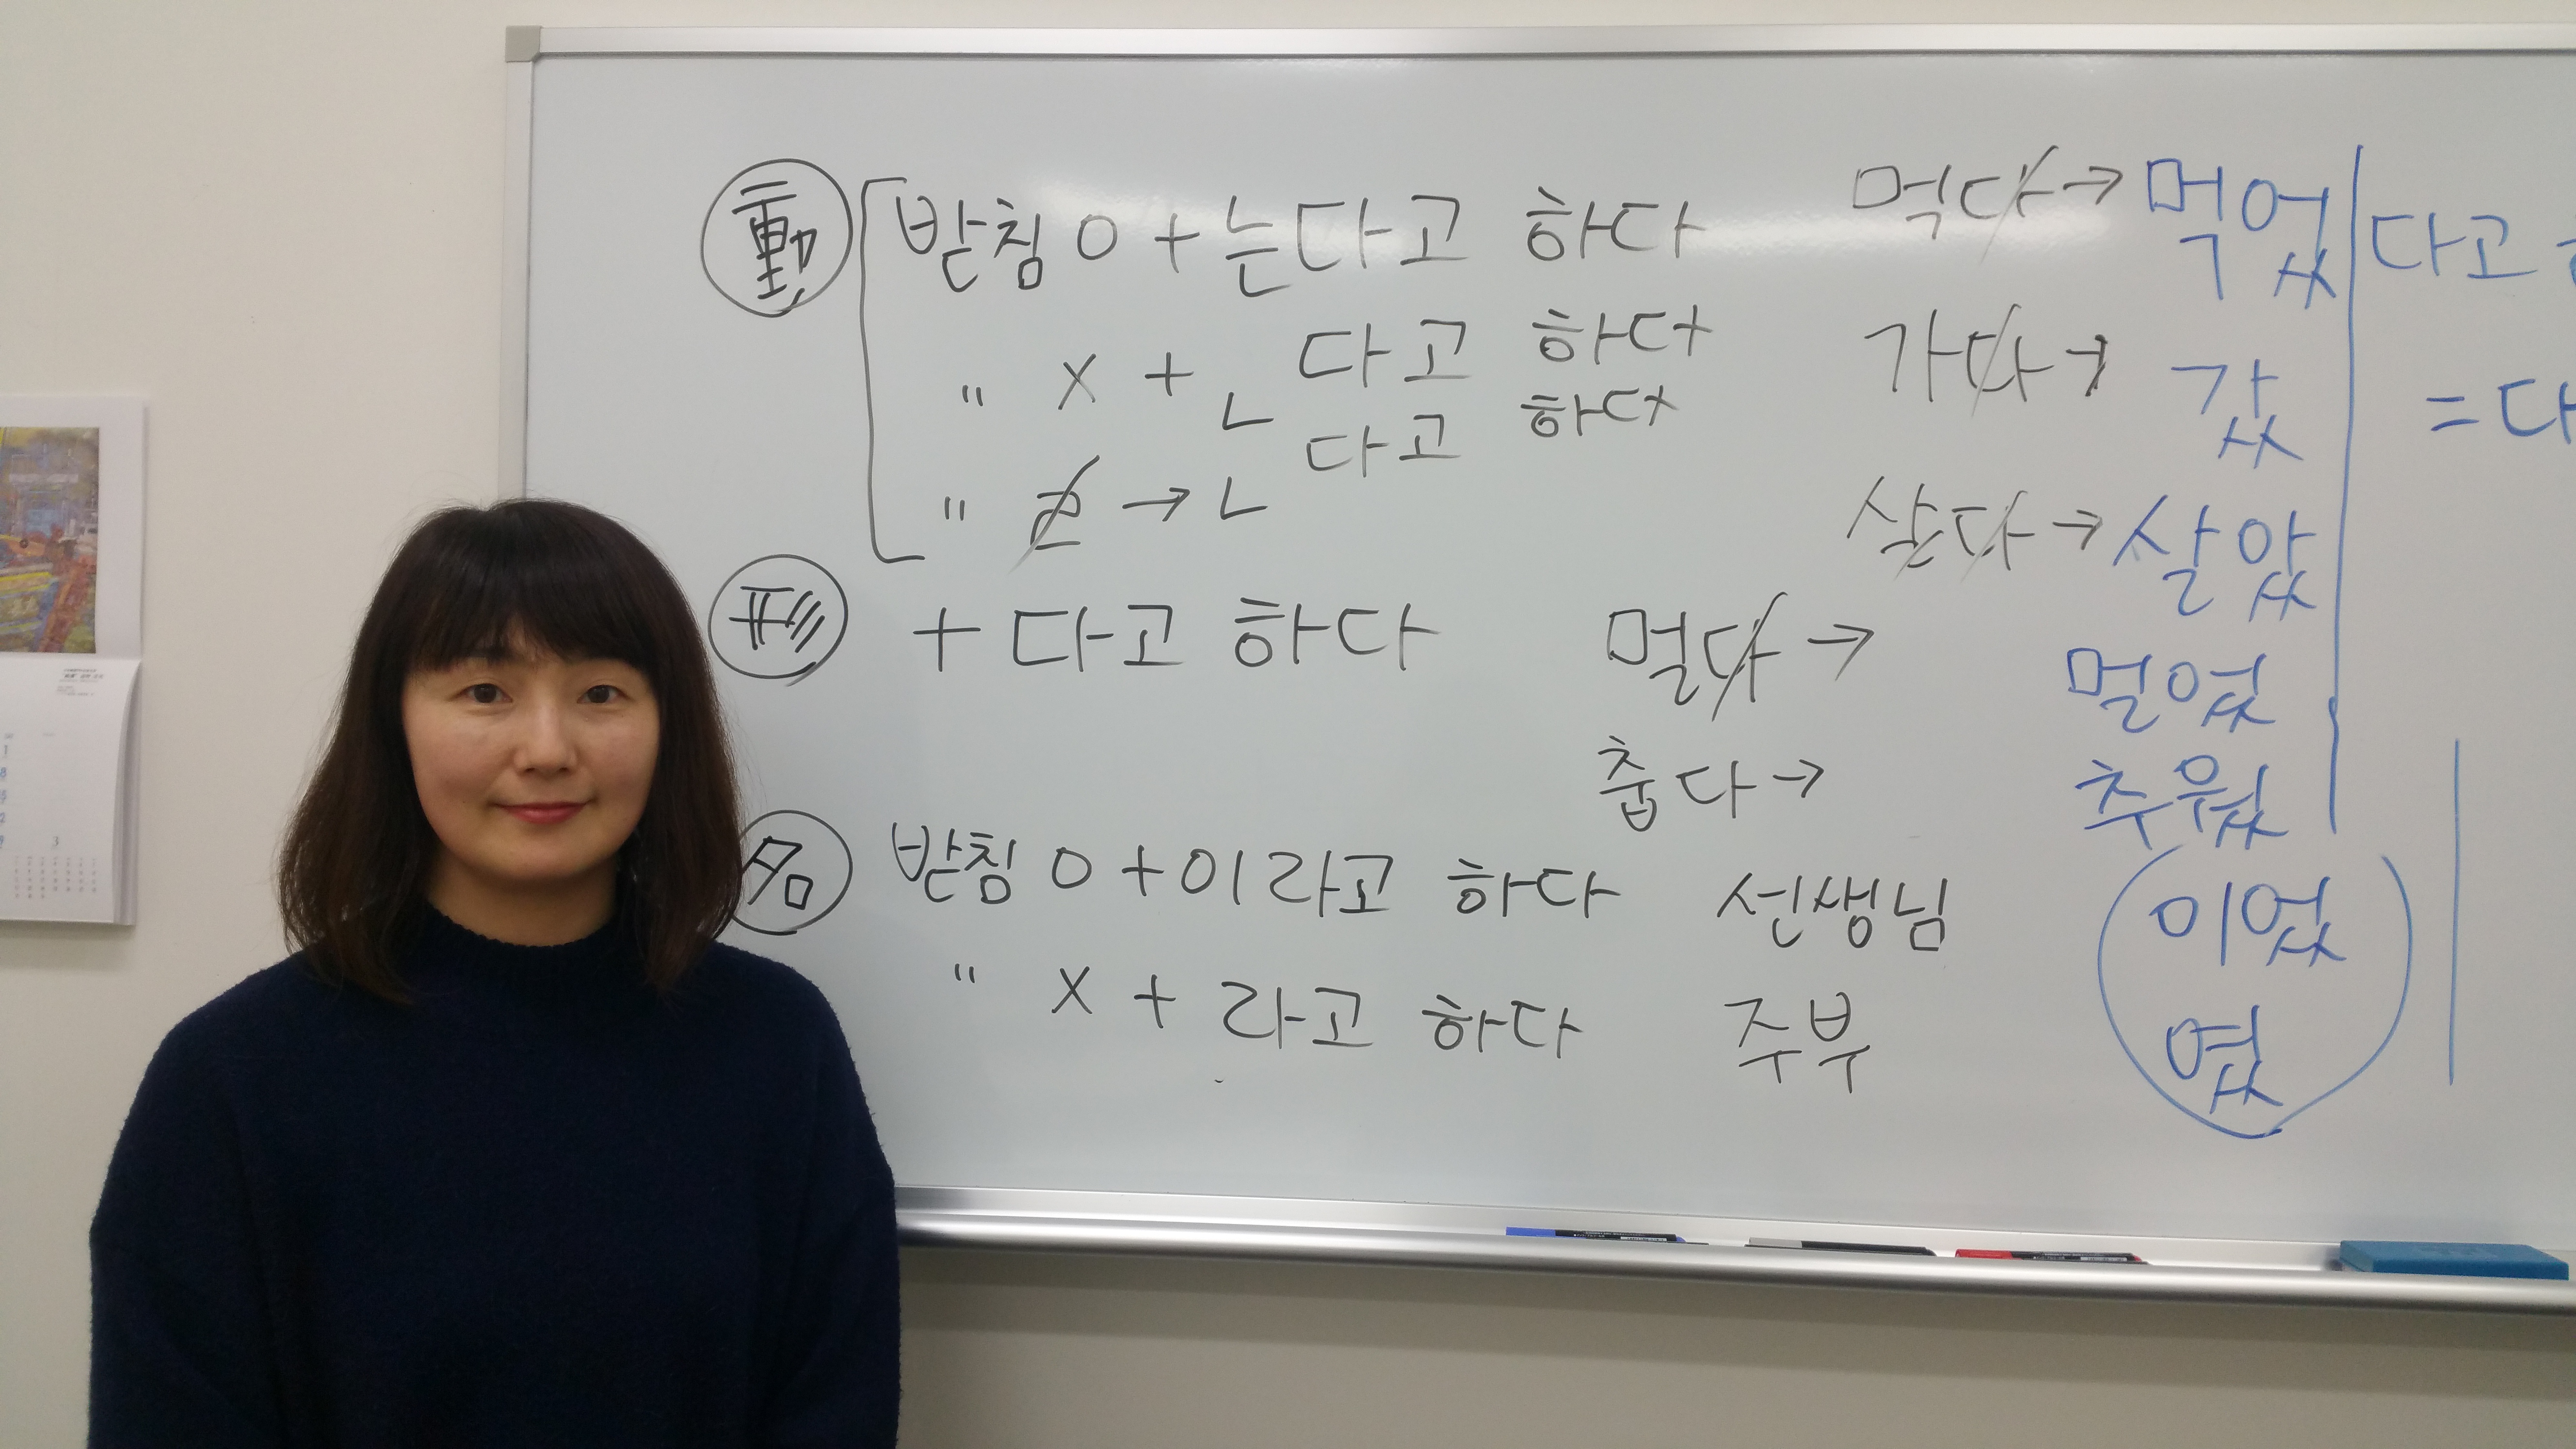 動 받침 O + 는다고 하다 먹다 → 먹었 다고
" X + ㄴ 다고 하다 가다 → 갔 = 다
" ㄹ → ㄴ 다고 하다 살다 → 살았
形 + 다고 하다 멀다 → 멀었
춥다 → 추웠
名 받침 O + 이라고 하다 선생님 이었
" X + 라고 하다 주부 였